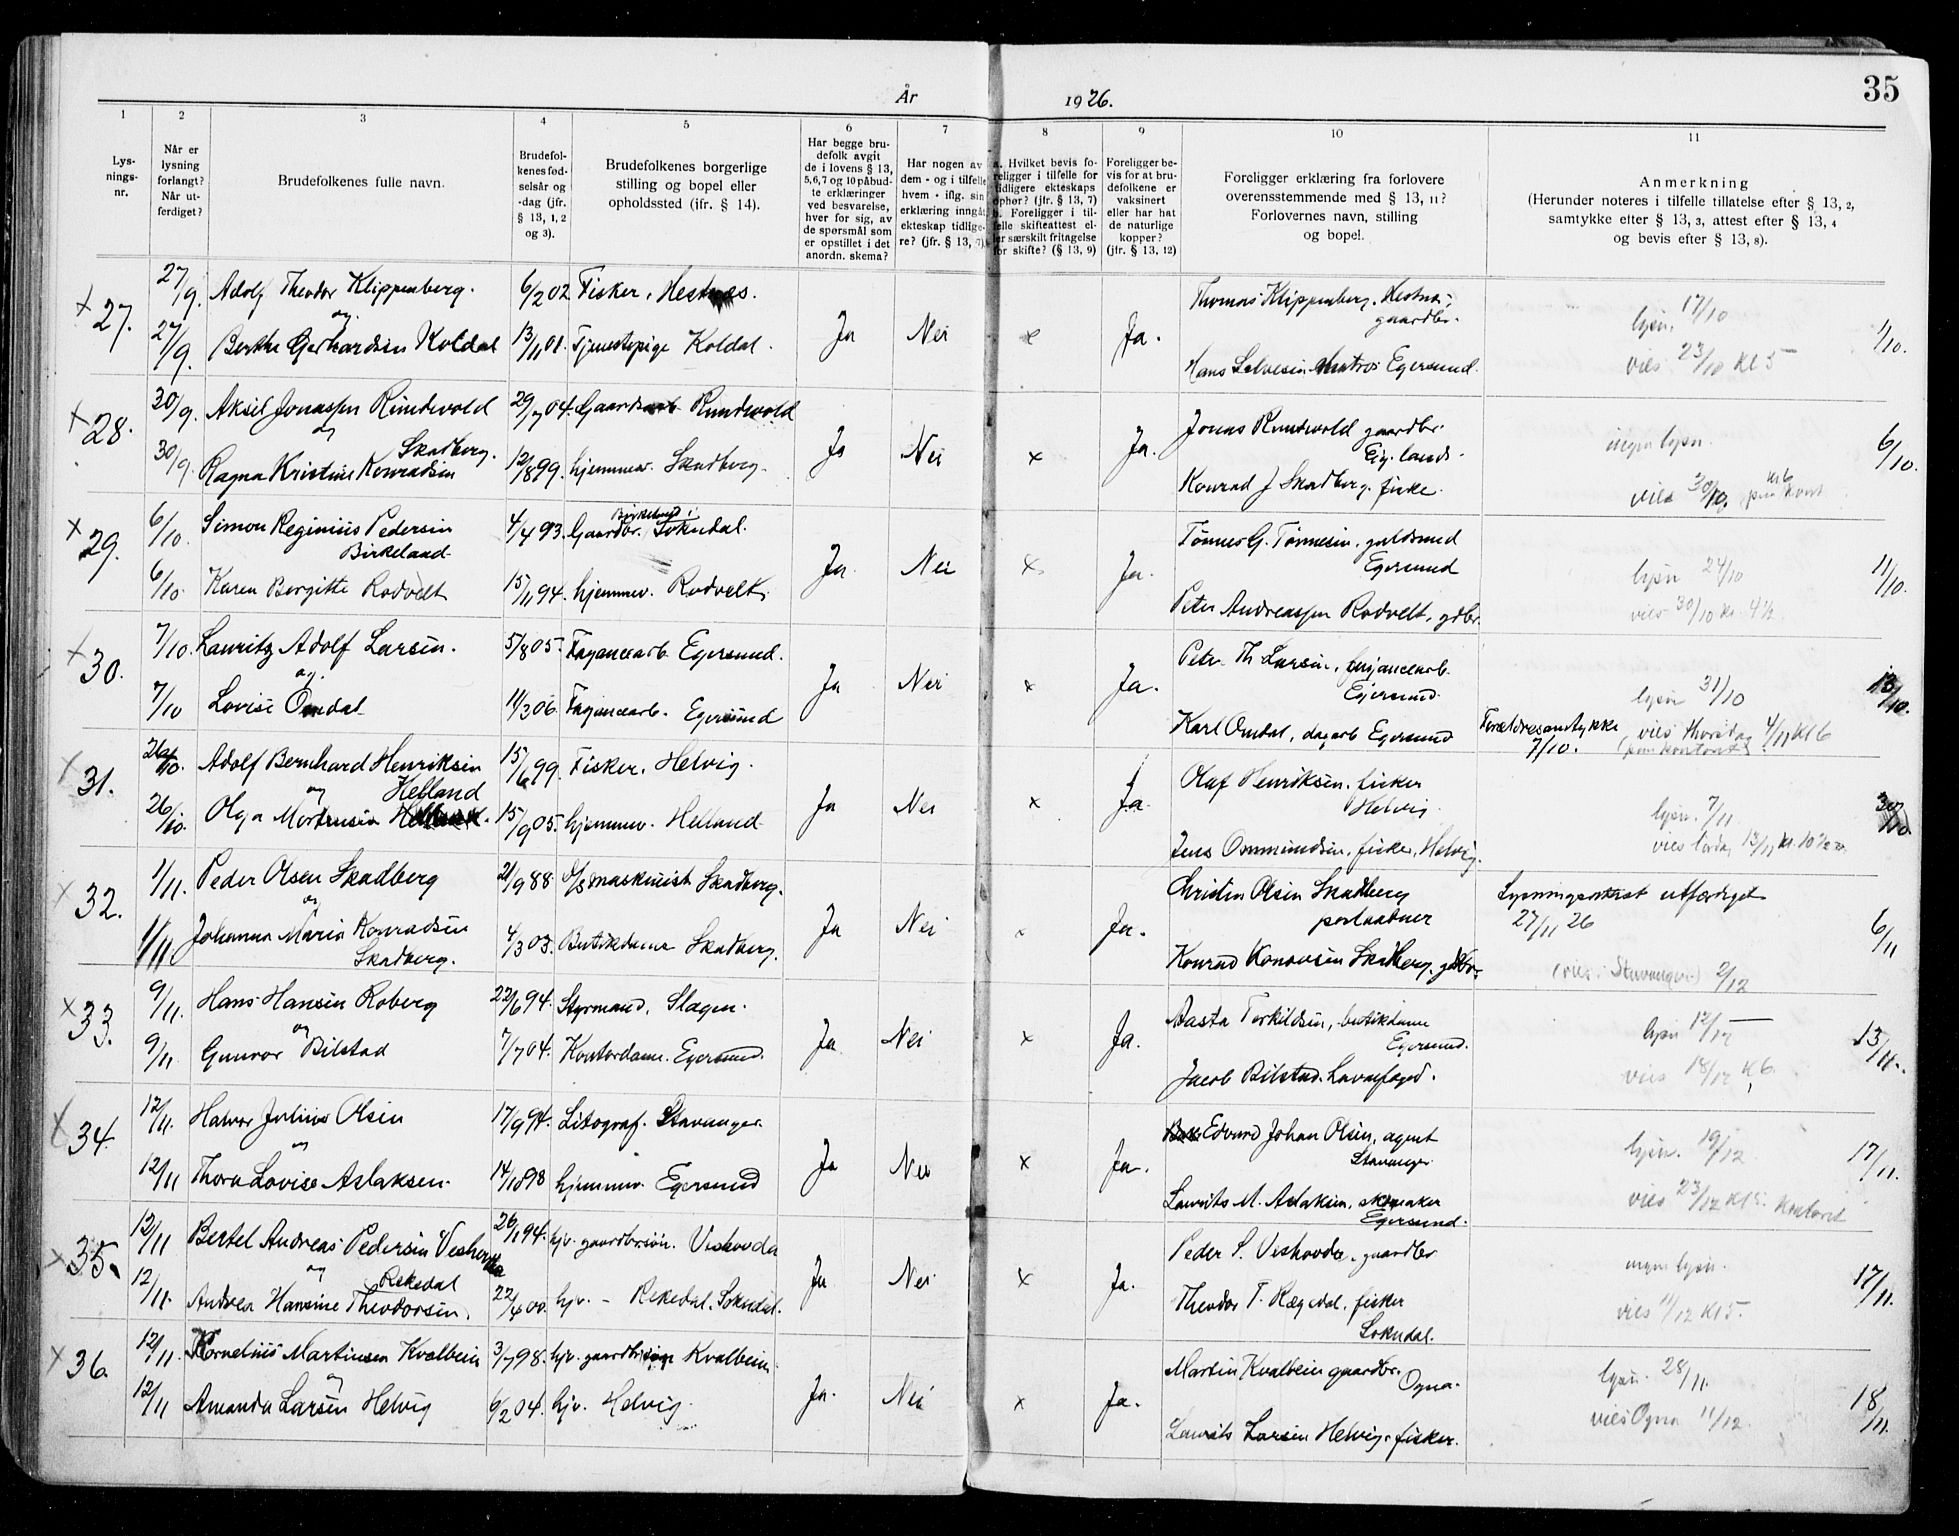 35
År 1926.
1 2 3 4 5 6 7 8 9 10 11
Lys-
nings-
nr.
Når er
lysning
forlangt?
Når ut-
ferdiget?
Brudefolkenes fulle navn.
Brudefol-
kenes fød-
selsår og
-dag (jfr.
§ 13, 1, 2
og 3).
Brudefolkenes borgerlige
stilling og bopel eller
opholdssted (ifr. § 14).
Har begge bru-
defolk avgit
de i lovens § 13,
5,6,7 og 10 påbud-
te erklæringer
ved besvarelse,
hver for sig, av
de spørsmål som
er opstillet i det
anordn. skema?
Har nogen av
dem - og i tilfelle
hvem - iflg. sin
erklæring inngått
ekteskap tidlige-
re? (jfr. § 13, 7).
a. Hvilket bevis fo-
religger i tilfelle for
tidligere ekteskaps
ophør? (jfr. § 13, 7)
b. Foreligger i til-
felle skifteattest el-
ler særskilt fritagelse
for skifte? (§ 13, 9)
Foreligger be-
vis for at bru-
defolkene er
vaksinert
eller har hat
de naturlige
kopper?
(jfr. § 13, 12)
Foreligger erklæring fra forlovere
overensstemmende med § 13, 11?
Forlovernes navn, stilling
og bopel.
Anmerkning
(Herunder noteres i tilfelle tillatelse efter § 13, 2,
samtykke efter § 13, 3, attest efter § 13, 4
og bevis efter § 13, 8).
x 27. 27/9. Adolf Theodor Klippenberg. 6/2 02 Fisker, Hestnæs. Thomas Klippenberg. Hestnæs,
og gaardbr. lysn. 17/10
27/9. Berthe Gerhardsen Koldal 13/11 01. Tjenestepige Koldal. Ja Nei x Ja. 1/10.
Hans Salvesen Matros Egersund. vies 23/10 Kl 5
x 28. 30/9. Aksel Jonassen Rundvold 29/7 04. Gaardsarb. Rundvold Jonas Rundvold gaardbr.
og Skadberg. Eig. lands. ingen lysn.
30/9. Ragna Kristine Konradsen 12/8 99. hjemmev. Skadberg. Ja Nei x Ja. 6/10.
Konrad J Skadberg. fisker. vies 30/10 kl 6
x 29. 6/10 Simon Reginius Pedersen 4/4 93. Gaardbr. Birkeland i Sokndal. Tønnes G. Tønnesen, guldsmed
Birkeland Egersund lysn 24/10
6/10. Karen Bergitte Rodvelt 15/11 94. hjemmev. Rodvelt. Ja. Nei x Ja. 11/10.
Peter Andreassen Rodvelt, gdbr. vies 30/10 Kl. 4½
x 30. 7/10. Lauritz Adolf Larsen. 5/8 05. Fayancearb. Egersund. Petr. Th Larsen, fayancearb.
og. Egersund. lysn 31/10
7/10 Lovise Omdal 11/3 06. Fayancearb. Egersund Ja Nei x Ja. 13/10.
Karl Omdal, dagarb Egersund Forældresamtykke vies thorsdag 4/11 Kl 6
7/10. (paa kontoret)
x 31. 26/10. Adolf Bernhard Henriksen 15/6 99. Fisker, Helvig. Olaf Henriksen, fisker
og Helland Helvig. lysn. 7/11
26/10. Olga Mortensen 15/9 05. hjemmev. Helland Ja Nei x Ja. 30/10
Jens Ommundsen, fisker, Helvig. vies lørdag 13/11 Kl. 10½
x 32. 1/11. Peder Olsen Skadberg 21/9 88. maskinist Skadberg. Christen Olsen Skadberg Lysningsattest utfærdiget
og postaabner 27/11 26
1/11 Johanna Marie Konradsen 4/3 03. Butikdame Skadberg. Ja Nei x Ja. 6/11
Skadberg. Konrad Skadberg, gdbr. (vies i Stavanger) 2/12
x 33. 9/11. Hans Hansen Roberg 22/6 94. Styrmand, Slagen. Aasta Torkildsen, butikdame
og Egersund. lysn 12/12
9/11. Gunvor Bilstad 7/7 04. Kontordame. Egersund. Ja. Nei x Ja. 13/11.
Jacob Bilstad. Havnefoged. vies 18/12 Kl 6.
x 34. 12/11. Halvor Julius Olsen 17/9 94. Litograf. Stavanger. Edvard Johan Olsen, agent
og Stavanger. lysn. 19/12
12/11 Thora Lovise Aslaksen. 14/10 98 hjemmev. Egersund Ja Nei x Ja. 17/11.
Laurits M. Aslaksen, skomaker vies 23/12 Kl 5. Kontoret
Egersund.
x 35. 12/11 Bertel Andreas Pedersen 26/1 94. hjv. gaardbrsøn. Veshovda Peder S. Veshovde, gaardbr
og Rekedal ingen lysn.
12/11. Andrea Hansine Theodorsen. 22/4 00. hjv. - Rekedal. Sokndal. Ja Nei x Ja. 17/11.
Theodor T. Rægedal, fisker vies 11/12 Kl 5.
Sokndal.
x 36. 12/11. Kornelius Martinsen Kvalbein 3/7 98. hjv. gaardbrsøn Kvalbein. Martin Kvalbein gaardbr.
og Ogna. lysn. 28/11.
12/11 Amanda Larsen Helvig 6/2 04. hjv. Helvig. Ja. Nei x Ja. 18/11.
Laurits Larsen Helvig. fisker. vies Ogna 11/12.